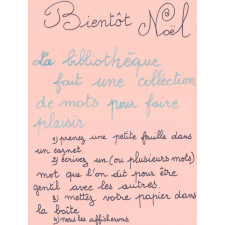 Bientôt Noël
La bibliothèque
fait une collection
de mots pour faire
plaisir
1) prenez une petite feuille dans
un carnet.
2) écrivez un (ou plusieurs mots)
mot que l'on dit pour être
gentil avec les autres.
3) mettez votre papier dans
la boîte
4) nous les afficherons